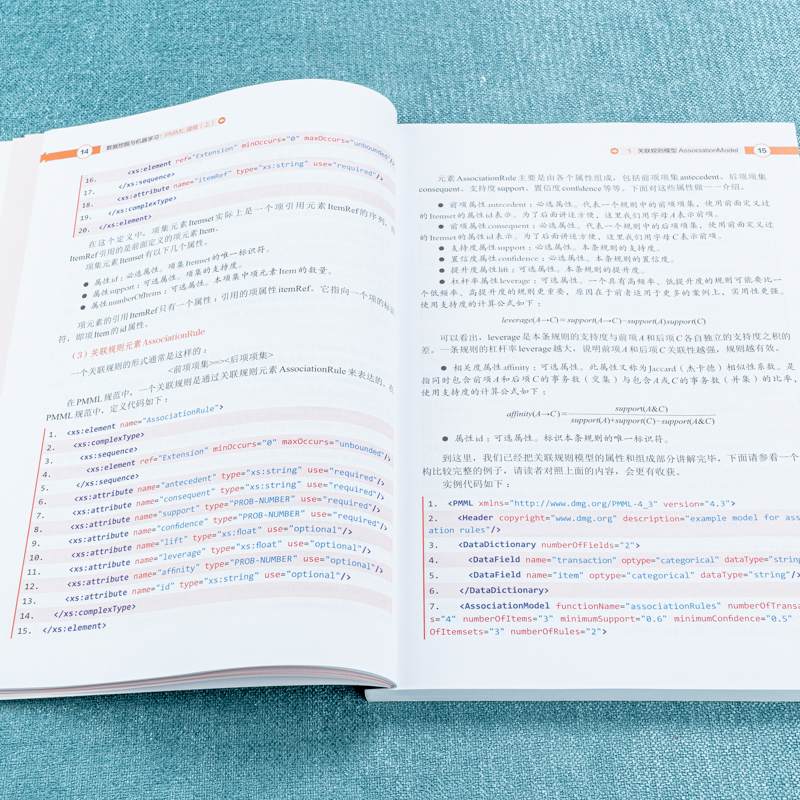 14 数据挖掘与机器学习：PMML建模（上）
<xs:element ref="Extension" minOccurs="0" maxOccurs="unbounded"/>
16. </xs:sequence>
17. <xs:attribute name="itemRef" type="xs:string" use="required"/>
18. </xs:complexType>
19. </xs:element>
20.
在这个定义中，项集元素Itemset实际上是一个项引用元素ItemRef的序列，
ItemRef引用的是前面定义的项元素Item。
项集元素Itemset有以下几个属性。
● 属性id：必选属性。项集Itemset的唯一标识符。
● 属性support：可选属性。项集的支持度。
● 属性numberOfItems：可选属性。本项集中项元素Item的数量。
项元素的引用ItemRef只有一个属性：引用的项属性itemRef。它指向一个项的标识
符，即项Item的id属性。
（3）关联规则元素AssociationRule
一个关联规则的形式通常是这样的：
<前项项集>=><后项项集>
在PMML规范中，一个关联规则是通过关联规则元素AssociationRule来表达的。在
PMML规范中，定义代码如下：
1. <xs:element name="AssociationRule">
2. <xs:complexType>
3. <xs:sequence>
4. <xs:element ref="Extension" minOccurs="0" maxOccurs="unbounded"/>
5. </xs:sequence>
6. <xs:attribute name="antecedent" type="xs:string" use="required"/>
7. <xs:attribute name="consequent" type="xs:string" use="required"/>
8. <xs:attribute name="support" type="PROB-NUMBER" use="required"/>
9. <xs:attribute name="confidence" type="PROB-NUMBER" use="required"/>
10. <xs:attribute name="lift" type="xs:float" use="optional"/>
11. <xs:attribute name="leverage" type="xs:float" use="optional"/>
12. <xs:attribute name="affinity" type="PROB-NUMBER" use="optional"/>
13. <xs:attribute name="id" type="xs:string" use="optional"/>
14. </xs:complexType>
15. </xs:element>
1 关联规则模型 AssociationModel 15
元素AssociationRule主要是由各个属性组成，包括前项项集antecedent、后项项集
consequent、支持度support、置信度confidence等等。下面对这些属性做一一介绍。
● 前项属性antecedent：必选属性。代表一个规则中的前项项集，使用前面定义过
的Itemset的属性id表示。为了后面讲述方便，这里我们用字母A表示前项。
● 前项属性consequent：必选属性。代表一个规则中的后项项集，使用前面定义过
的Itemset的属性id表示。为了后面讲述方便，这里我们用字母C表示前项。
● 支持度属性support：必选属性。本条规则的支持度。
● 置信度属性confidence：必选属性。本条规则的置信度。
● 提升度属性lift：可选属性。本条规则的提升度。
● 杠杆率属性leverage：可选属性。一个具有高频率、低提升度的规则可能要比一
个低频率、高提升度的规则更重要，原因在于前者适用于更多的案例上，实用性更强。
使用支持度的计算公式如下：
leverage(A→C)=support(A→C)−support(A)support(C)
可以看出，leverage是本条规则的支持度与前项A和后项C各自独立的支持度之积的
差。一条规则的杠杆率leverage越大，说明前项A和后项C关联性越强，规则越有效。
● 相关度属性affinity：可选属性。此属性又称为Jaccard（杰卡德）相似性系数。是
指同时包含前项A和后项C的事务数（交集）与包含A或C的事务数（并集）的比率，
使用支持度的计算公式如下：
support(A&C)
affinity(A→C)=
support(A)+support(C)−support(A&C)
● 属性id：可选属性。标识本条规则的唯一标识符。
到这里，我们已经把关联规则模型的属性和组成部分讲解完毕，下面请参看一个
构比较完整的例子，请读者对照上面的内容，会更有收获。
实例代码如下：
1. <PMML xmlns="http://www.dmg.org/PMML-4_3" version="4.3">
2. <Header copyright="www.dmg.org" description="example model for ass
ation rules"/>
3. <DataDictionary numberOfFields="2">
4. <DataField name="transaction" optype="categorical" dataType="string
5. <DataField name="item" optype="categorical" dataType="string"/>
6. </DataDictionary>
7. <AssociationModel functionName="associationRules" numberOfTransa
s="4" numberOfItems="3" minimumSupport="0.6" minimumConfidence="0.5"
OfItemsets="3" numberOfRules="2">